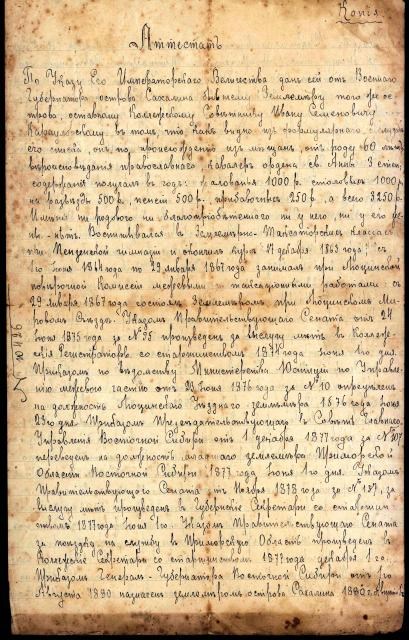 Копія
Аттестатъ
По Указу Его Императорскаго Величества данъ сей отъ Военнаго
Губернатора острова Сахалина бывшему Землемѣру того же ос-
трова, отставному Коллежскому Совѣтнику Ивану Семеновичу
въ томъ, что какъ видно изъ формулярнаго о службѣ
его списка, онъ, по происхожденію изъ мѣщанъ, отъ роду 60 лѣтъ
вѣроисповѣданія православнаго Кавалеръ ордена св. Анны 3 степ.
содержанія получалъ въ годъ: жалованья 1000 р. столовыхъ 1000 р.
на разъѣзды 500 р. пенсіи 500 р. прибавочныхъ 250 р. а всего 3250 р.
Имѣнія ни родового ни благопріобрѣтеннаго ни у него, ни у его
нѣтъ. Воспитывался въ Землемѣрно-Таксаторскихъ классахъ
при Пензенской гимназіи и окончилъ курсъ 17 декабря 1863 года; съ
1864 года по 29 января 1867 года занимался при Люцинской
повѣрочной Комиссіи межевыми и таксаціонными работами; съ
29 января 1867 года состоялъ Землемѣромъ при Люцинскомъ Ми-
ровомъ Съѣздѣ. Указомъ Правительствующаго Сената отъ 24
Іюня 1875 года за № 75 произведенъ за выслугу лѣтъ въ Коллеж-
скіе Регистраторы со старшинствомъ 1871 года Іюня 1го дня.
Приказомъ по вѣдомству Министерства Юстиціи по Управле-
нію межевою частію отъ 23 Іюня 1876 года за № 10 опредѣленъ
на должность Люцинскаго Уѣзднаго землемѣра 1876 года Іюня
23го дня. Приказомъ Предсѣдательствующаго въ Совѣтѣ Главнаго
Управленія Восточной Сибири отъ 1 декабря 1877 года за № 107
переведенъ на должность младшаго землемѣра Приморской
Области Восточной Сибири 1877 года Іюня 1го дня. Указомъ
Правительствующаго Сената отъ Ноября 1878 года за № 187, за
выслугу лѣтъ произведенъ въ Губернскіе Секретари со старшин-
ствомъ 1877 года Іюня 1го. Указомъ Правительствующаго Сената
за поѣздку на службу въ Приморскую Область произведенъ въ
Коллежскіе Секретари со старшинствомъ 1877 года декабря 1го.
Приказомъ Генералъ-Губернатора Восточной Сибири отъ 1го
Августа 1880 назначенъ землемѣромъ острова Сахалина 1880 г.
№ 10446